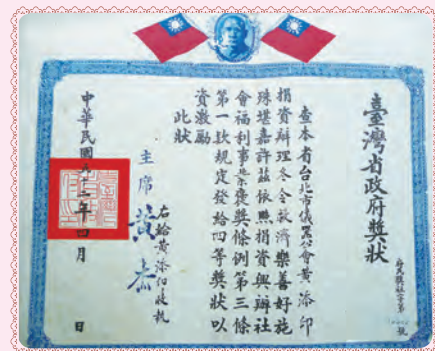 臺灣省政府獎狀
府民獎社字第 號
查本省台北市儀器公會黃添印
捐資辦理冬令救濟樂善好施
殊堪嘉許茲依照捐資興辦社
會福利事業褒獎條例第三條
第一款規定發給四等獎狀以
資激勵
此狀
右給黃添印收執
主席 黃杰
中華民國五十二年四月 日